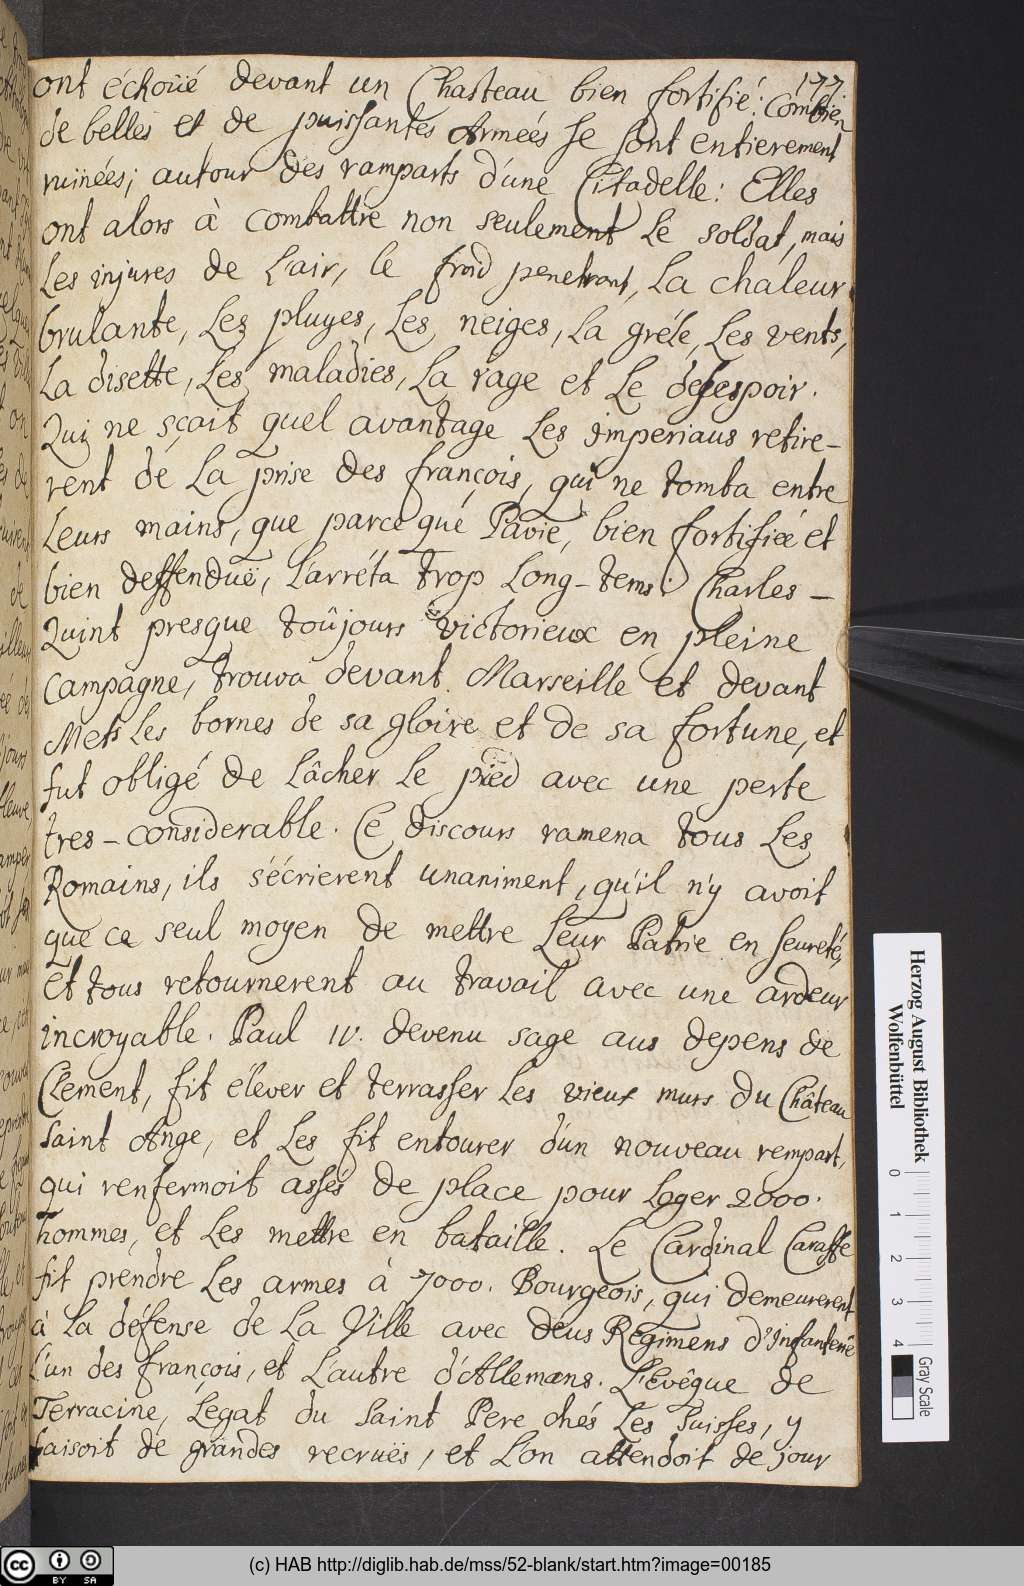 177.
ont échoüé devant un Chasteau bien fortifié: Combien
de belles et de puissantes Armeés se sont entierement
ruinées; autour des ramparts d'une Citadelle: Elles
ont alors à combattre non seulement le soldat, mais
les injures de l'air, le froid penetrant, la chaleur
brulante, les pluyes, les neiges, la gréle, les vents,
la disette, les maladies, la rage et le desespoir.
Qui ne sçait quel avantage les imperiaus retire-
rent de la prise des françois, qui ne tomba entre
leurs mains, que parce que Pavie, bien fortifiée et
bien deffenduë, l'arréta trop long-tems. Charles-
Quint presque toûjours victorieux en pleine
campagne, trouva devant Marseille et devant
Mets les bornes de sa gloire et de sa fortune, et
fut obligé de lâcher le pied avec une perte
tres-considerable. Ce discours ramena tous les
Romains, ils s'écrierent unaniment, qu'il n'y avoit
que ce seul moyen de mettre leur Patrie en seureté,
et tous retournerent au travail avec une ardeur
incroyable. Paul IV. devenu sage aus depens de
Clement, fit élever et terrasser les vieux murs du Château
Saint Ange, et les fit entourer d'un nouveau rempart,
qui renfermoit assés de place pour loger 2000.
hommes, et les mettre en bataille. Le Cardinal Caraffe
fit prendre les armes à 7000. Bourgeois, qui demeurerent
à la défense de la Ville avec deus Regimens d'Infanterie
l'un des françois, et l'autre d'Allemans. L'Evêque de
Terracine, Légat du Saint Pere chés les Suisses, y
faisoit de grandes recruës, et l'on attendoit de jour
Herzog August Bibliothek
Wolfenbüttel
0 1 2 3 4
Gray Scale
cc BY SA
(c) HAB http://diglib.hab.de/mss/52-blank/start.htm?image=00185